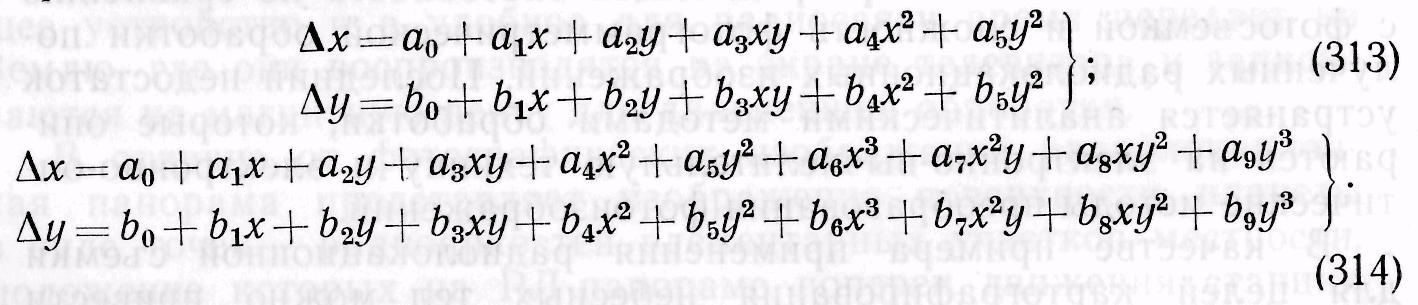 Δx = a₀ + a₁x + a₂y + a₃xy + a₄x² + a₅y²
Δy = b₀ + b₁x + b₂y + b₃xy + b₄x² + b₅y² }; (313)
Δx = a₀ + a₁x + a₂y + a₃xy + a₄x² + a₅y² + a₆x³ + a₇x²y + a₈xy² + a₉y³
Δy = b₀ + b₁x + b₂y + b₃xy + b₄x² + b₅y² + b₆x³ + b₇x²y + b₈xy² + b₉y³ }.
(314)